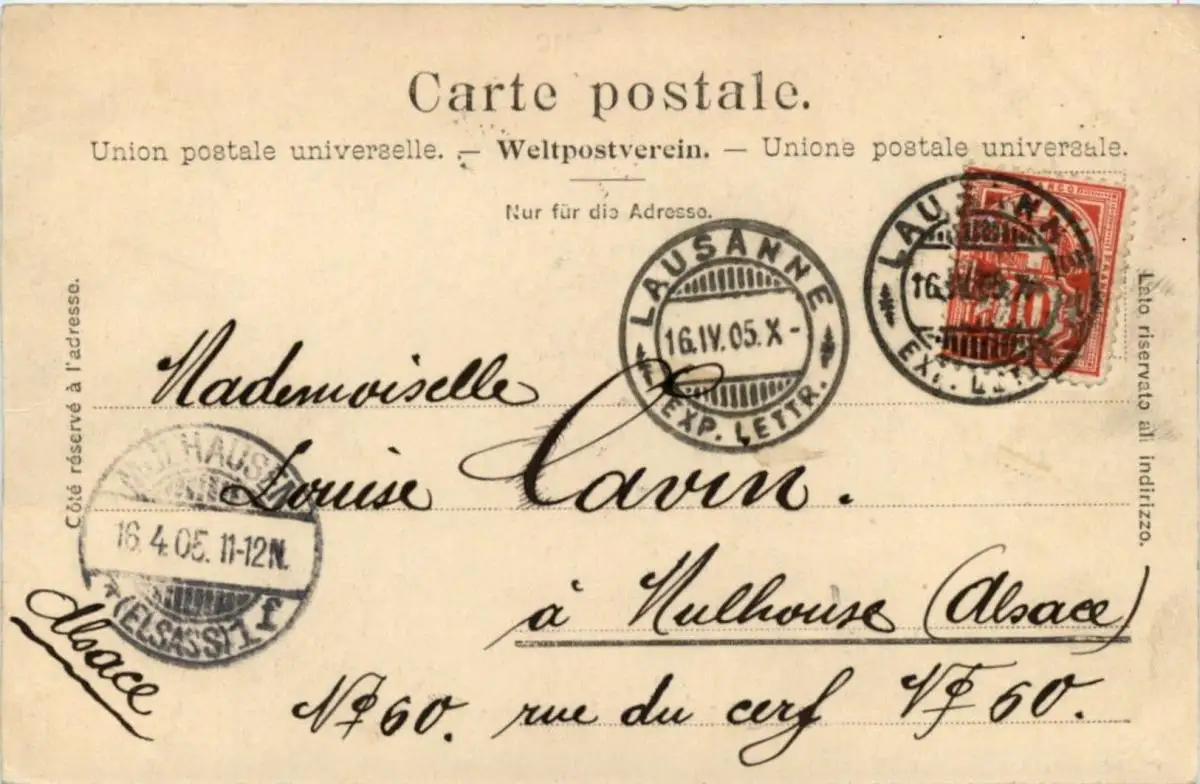 Carte postale.
Union postale universelle. — Weltpostverein. — Unione postale universale.
Nur für die Adresse.
Côté réservé à l'adresse.
Lato riservato all indirizzo.
LAUSANNE
16.IV.05.X-
EXP. LETTR.
LAUSANNE
EXP. LETTR.
10
Mademoiselle
Louise Cavin.
à Mulhouse (Alsace)
Nº 60. rue du cerf Nº 60.
Alsace
MÜLHAUSEN
16.4.05. 11-12N.
(ELSASS) 1 f